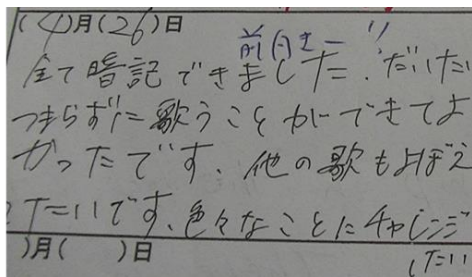 (4)月(26)日
前向きー!!
全て暗記できました。だいたい
つまらずに歌うことができてよ
かったです。他の歌もおぼえ
たいです、色々なことにチャレンジ
したい
)月( )日